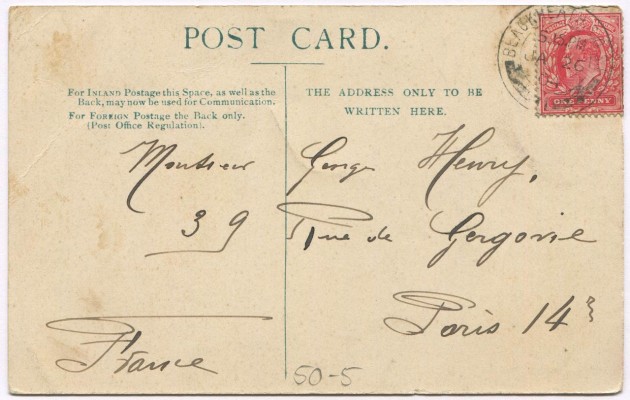 POST CARD.
For INLAND Postage this Space, as well as the
Back, may now be used for Communication.
For FOREIGN Postage the Back only.
(Post Office Regulation).
THE ADDRESS ONLY TO BE
WRITTEN HERE.
BLACKHEATH
JA 26
ONE PENNY
Monsieur Georges Henry,
39 Rue de Gergovie
Paris 14e
France
50-5